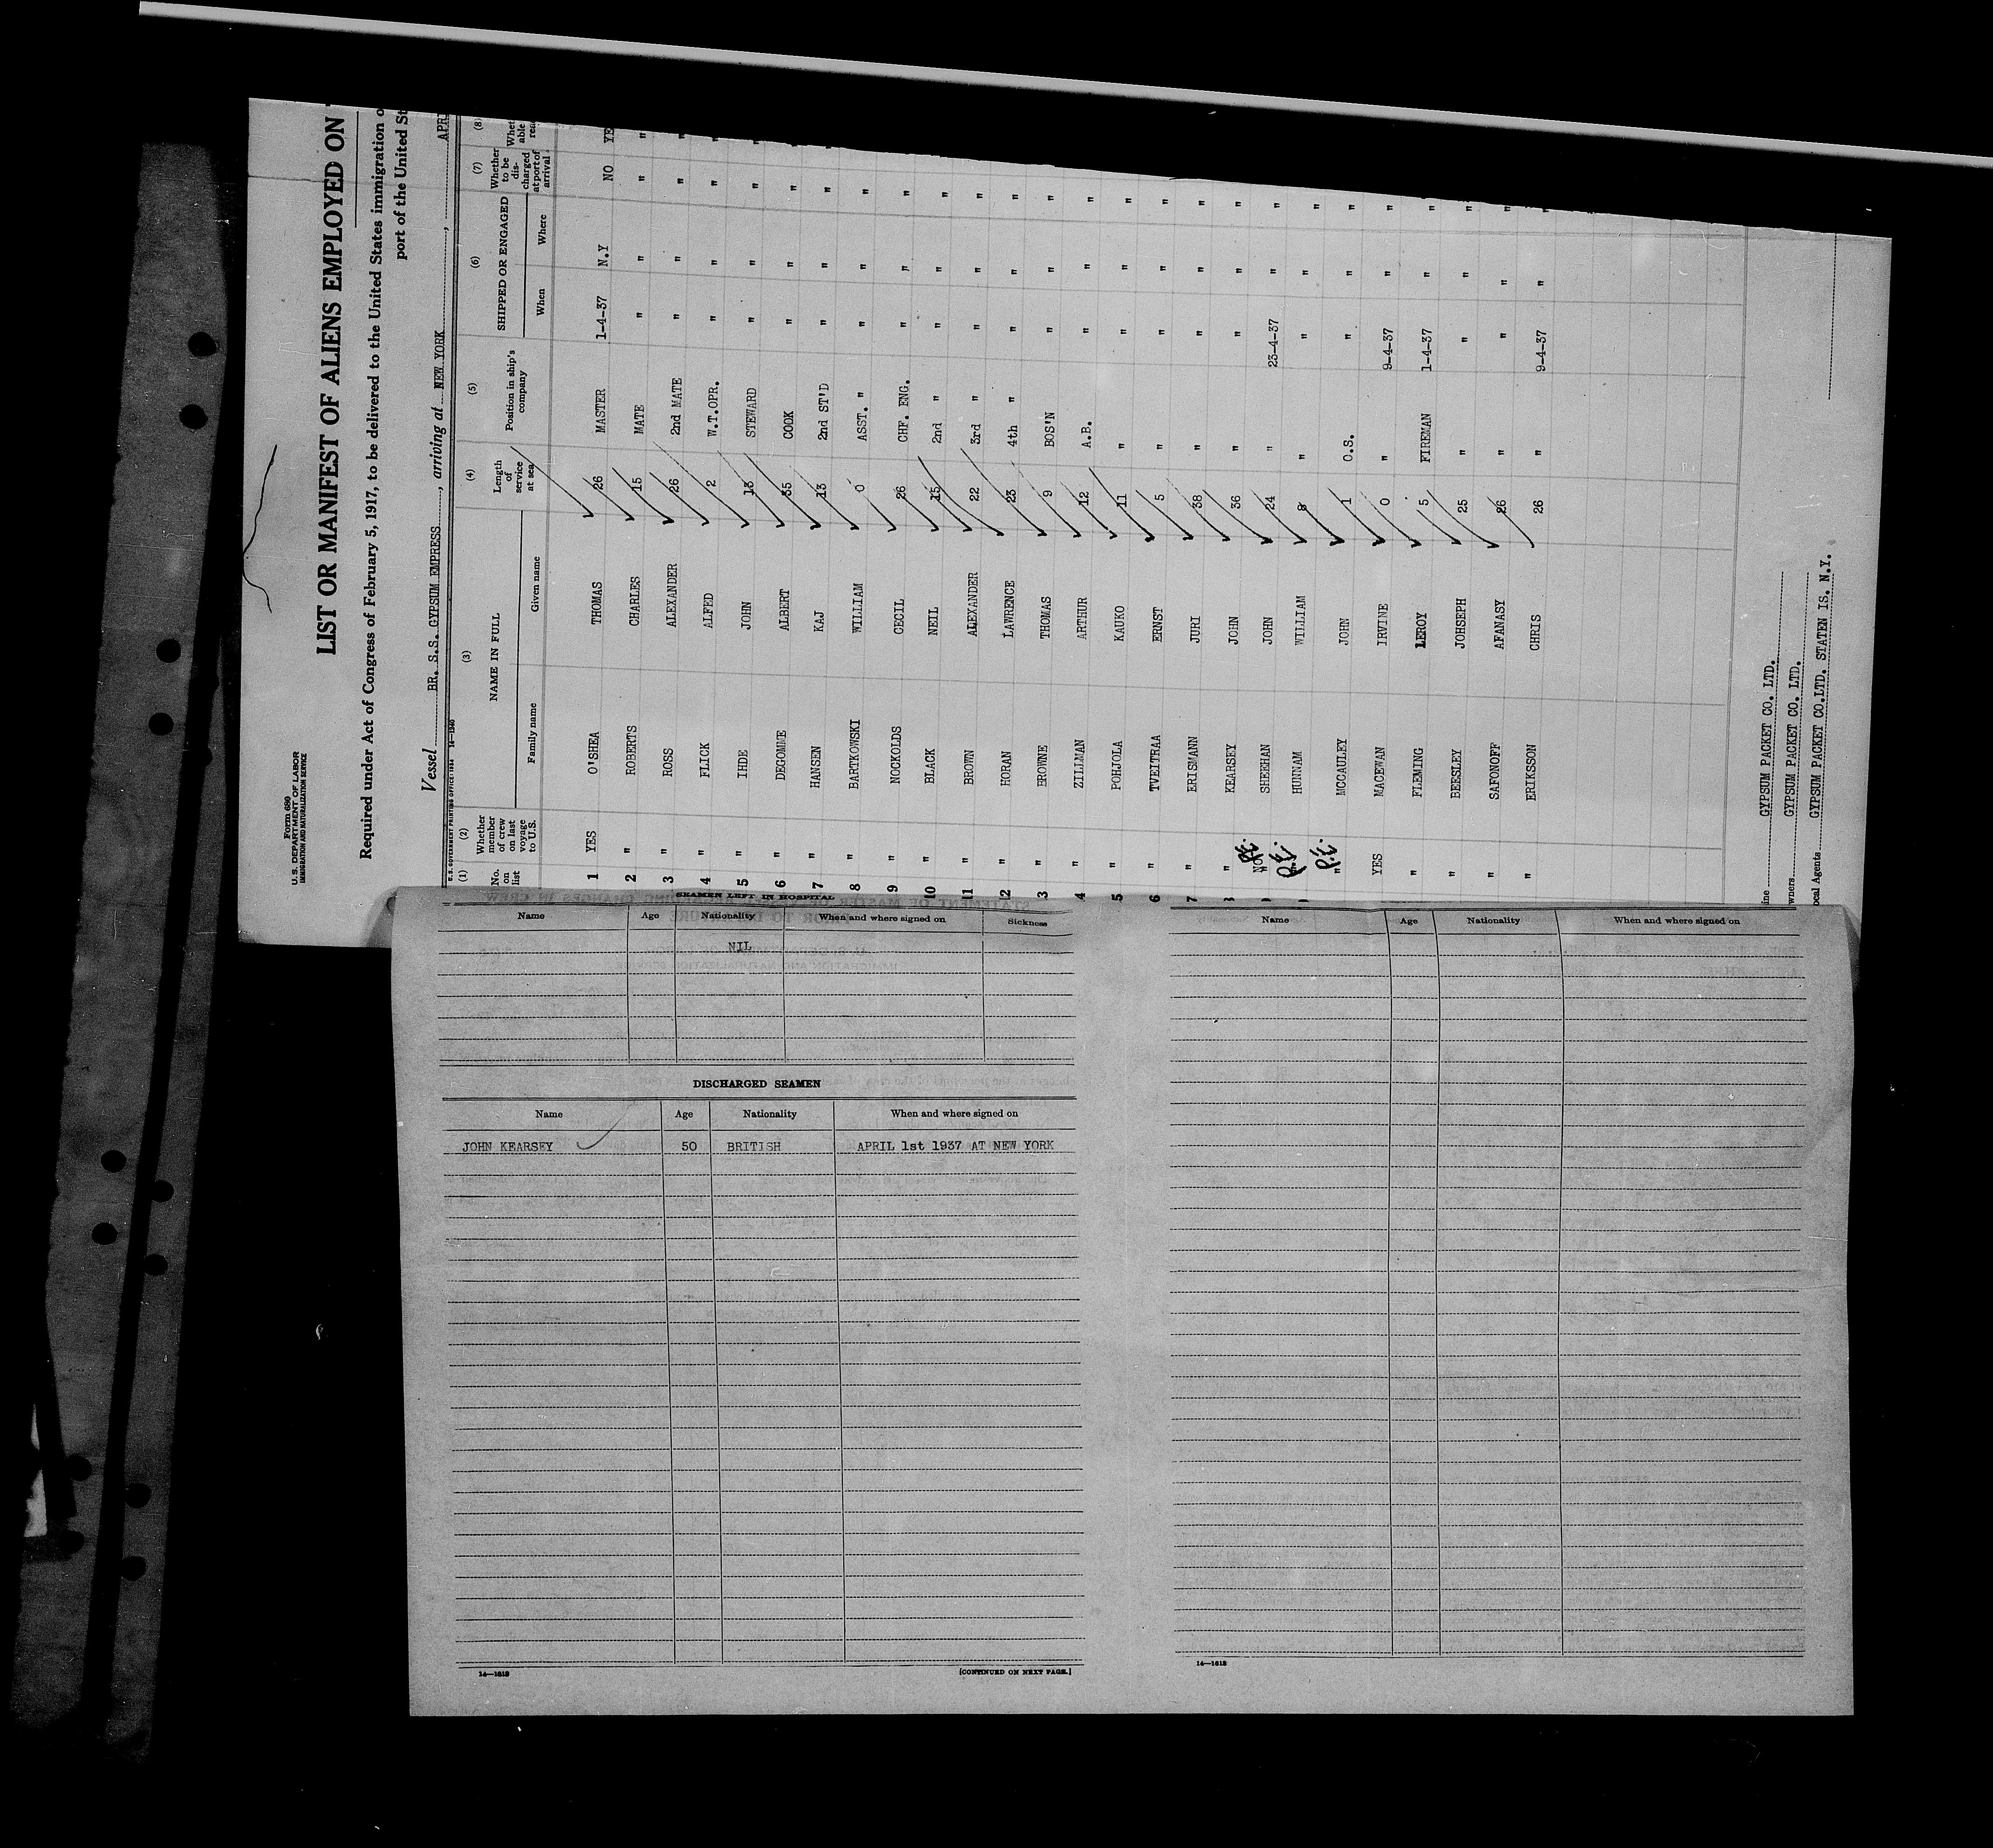 Form 680
U. S. DEPARTMENT OF LABOR
IMMIGRATION AND NATURALIZATION SERVICE
LIST OR MANIFEST OF ALIENS EMPLOYED ON
Required under Act of Congress of February 5, 1917, to be delivered to the United States immigration
port of the United
Vessel BR. S.S. GYPSUM EMPRESS, arriving at NEW YORK,
U.S. GOVERNMENT PRINTING OFFICE
(1) (2) (3) (4) (5) (6) (7) (8)
No. on list Whether member of crew on last voyage to U.S. NAME IN FULL Length of service at sea Position in ship's company SHIPPED OR ENGAGED Whether to be discharged at port of arrival
Family name Given name When Where
1 YES O'SHEA THOMAS 26 MASTER 1-4-37 N.Y NO
2 " ROBERTS CHARLES 15 MATE " " " "
3 " ROSS ALEXANDER 26 2nd MATE " " " "
4 " FLICK ALFED 2 W.T.OPR. " " " "
5 " IHDE JOHN 13 STEWARD " " " "
6 " DEGOMME ALBERT 35 COOK " " " "
7 " HANSEN KAJ 13 2nd ST'D " " " "
8 " BARTKOWSKI WILLIAM 0 ASST. " " " "
9 " NOCKOLDS CECIL 26 CHF. ENG. " " "
10 " BLACK NEIL 15 2nd " " " "
11 " BROWN ALEXANDER 22 3rd " " " "
12 " HORAN LAWRENCE 23 4th " " " "
3 " BROWNE THOMAS 9 BOS'N " " "
4 " ZILLMAN ARTHUR 12 A.B. " " "
5 " POHJOLA KAUKO 11 " " " "
6 " TVEITRAA ERNST 5 " " " "
7 " ERISMANN JURI 38 " " " "
" KEARSEY JOHN 36 " " " "
NO SHEEHAN JOHN 24 " 23-4-37 " "
" P.E. HUHNAM WILLIAM 8 " " " "
" P.E. MCCAULEY JOHN 1 O.S. " " "
YES MACEWAN IRVINE 0 " 9-4-37 " "
" FLEMING LEROY 5 FIREMAN 1-4-37 " "
" BEESLEY JOHSEPH 25 " " " "
" SAFONOFF AFANASY 26 " " " "
" ERIKSSON CHRIS 26 " 9-4-37 " "
GYPSUM PACKET CO. LTD.
GYPSUM PACKET CO. LTD.
ocal Agents GYPSUM PACKET CO.LTD. STATEN IS. N.Y.
SEAMEN LEFT IN HOSPITAL
Name Age Nationality When and where signed on Sickness
NIL
DISCHARGED SEAMEN
Name Age Nationality When and where signed on
JOHN KEARSEY 50 BRITISH APRIL 1st 1937 AT NEW YORK
14—1613 [CONTINUED ON NEXT PAGE.]
Name Age Nationality When and where signed on
14—1613